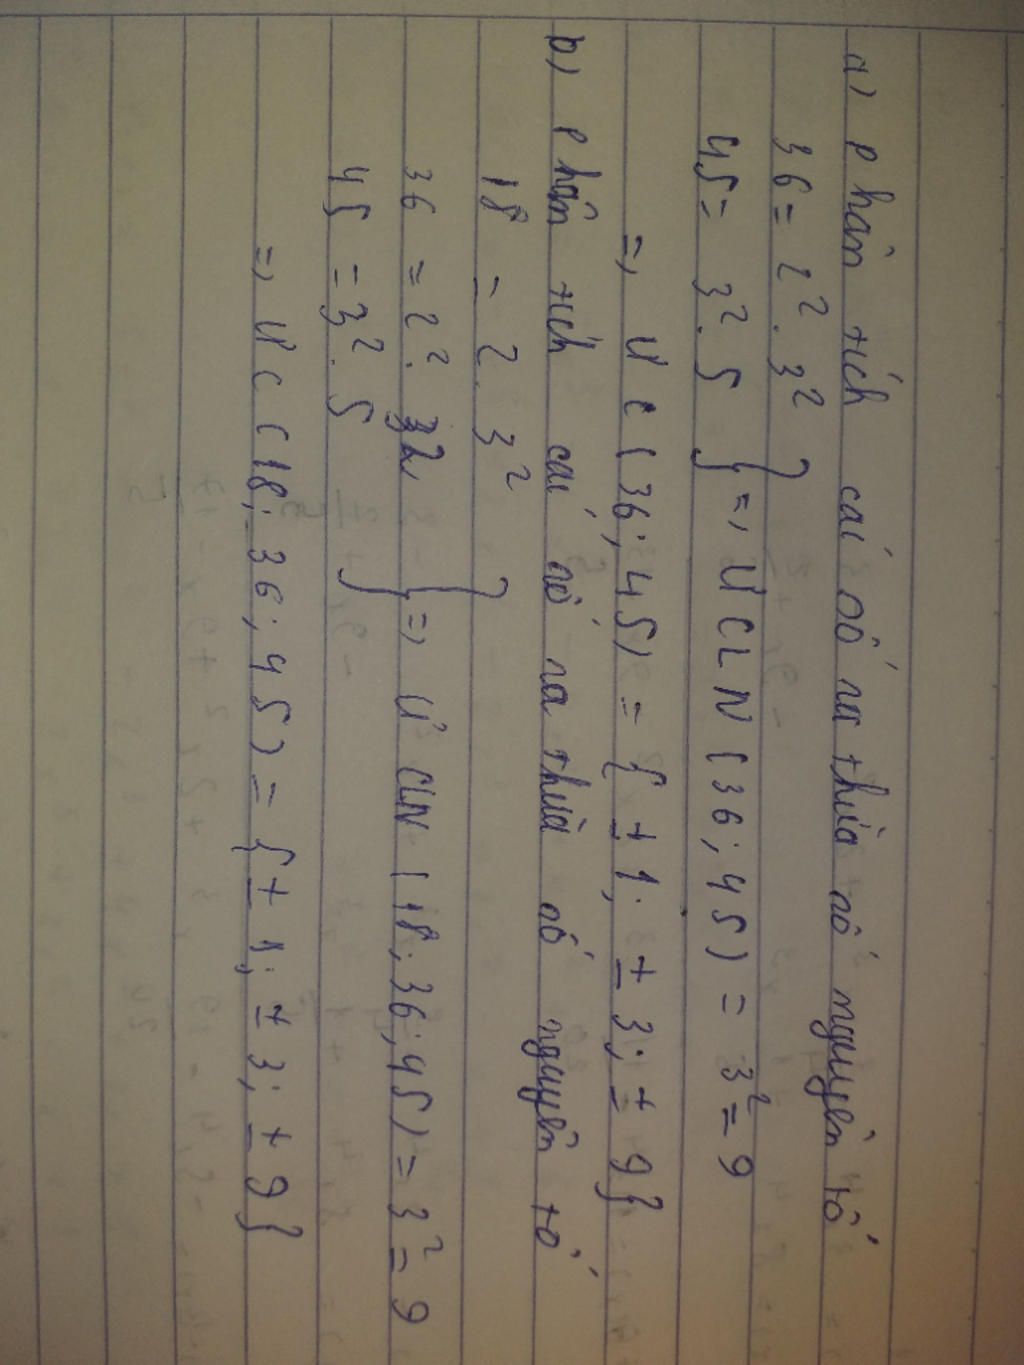 a) phân tích các số ra thừa số nguyên tố
36 = 2². 3²
45 = 3². 5 } => ƯCLN (36; 45) = 3² = 9
=> ƯC (36; 45) = { ± 1; ± 3; ± 9}
b) phân tích các số ra thừa số nguyên tố
18 = 2. 3²
36 = 2². 32 } => ƯCLN (18; 36; 45) = 3² = 9
45 = 3². 5
=> ƯC (18; 36; 45) = { ± 1; ± 3; ± 9}